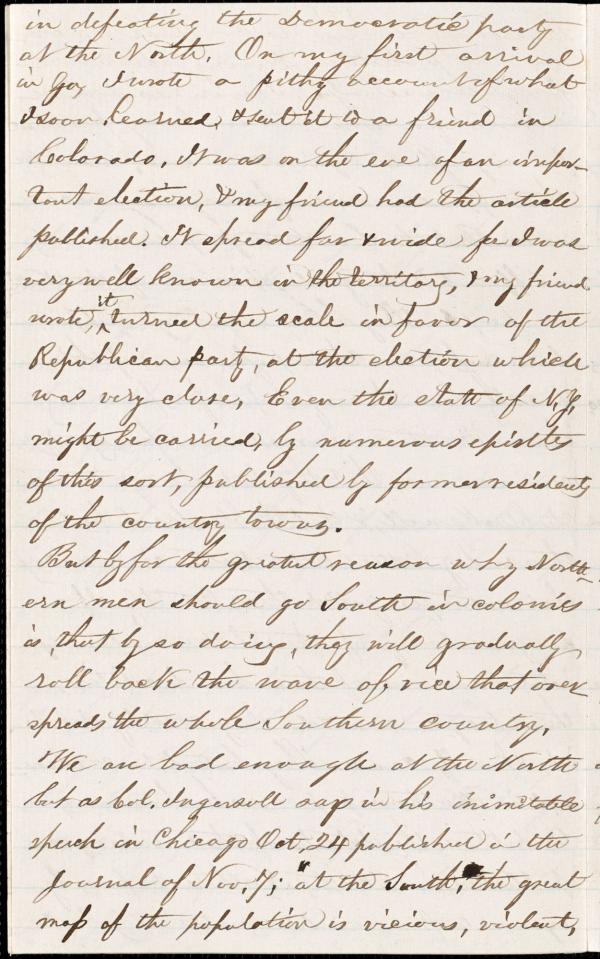 in defeating the Democratic party
at the North. On my first arrival
in Ga, I wrote a pithy account of what
I soon learned, & sent it to a friend in
Colorado. It was on the eve of an impor-
tant election, & my friend had the article
published. It spread far & wide for I was
very well known in the territory, & my friend
wrote, it turned the scale in favor of the
Republican party, at the election which
was very close, Even the state of N.Y,
might be carried, by numerous epistles
of this sort, published by former residents
of the country towns.
But by far the greatest reason why North-
ern men should go South in colonies
is, that by so doing, they will gradually
roll back the wave of vice that over
spreads the whole Southern country.
We are bad enough at the North
but as Col. Ingersoll says in his inimitable
speech in Chicago Oct, 24 published in the
Journal of Nov. 7; "at the South, the great
mass of the population is vicious, violent,